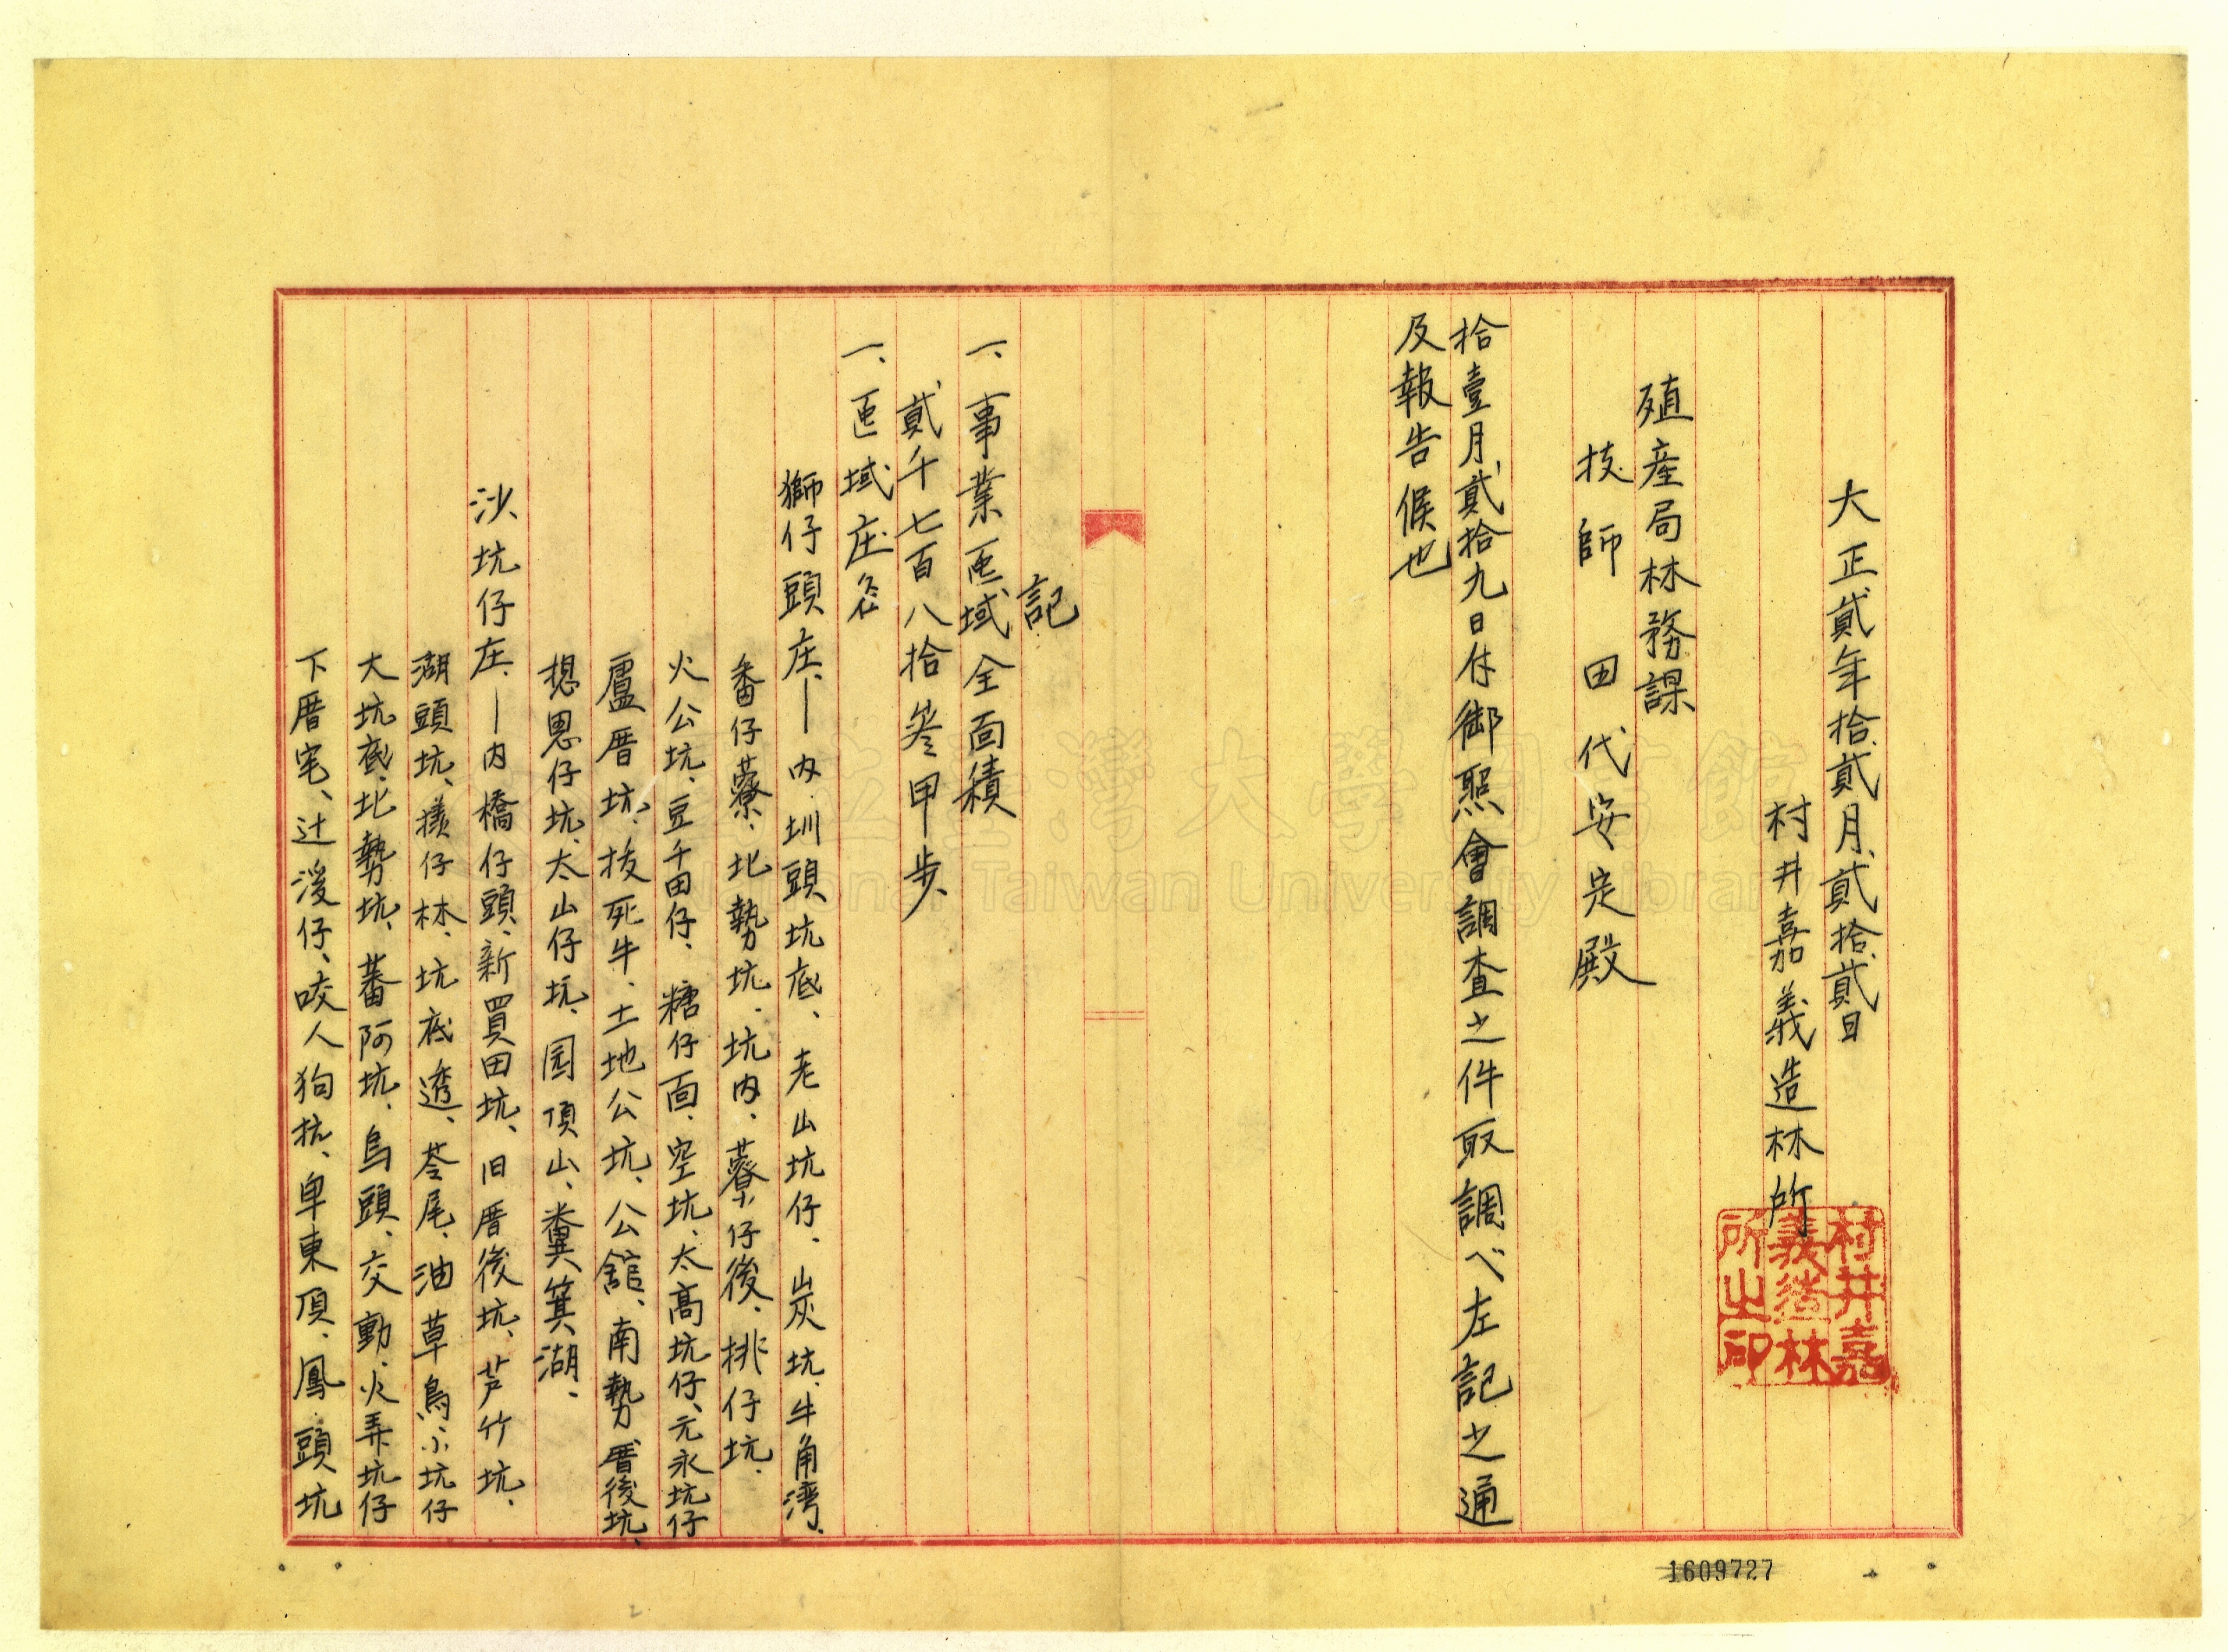 大正貳年拾貳月貳拾貳日
村井嘉義造林所
村井嘉
義造林
所之印
殖産局林務課
技師 田代安定殿
拾壹月貳拾九日付御照會調査之件取調ベ左記之通
及報告候也
記
一、事業區域全面積
貳千七百八拾參甲歩
一、區域庄名
獅仔頭庄、—内圳頭坑底、老山坑仔、炭坑、牛角湾、
番仔藔、北勢坑、坑内、藔仔後、桃仔坑、
火公坑、豆千田仔、糖仔面、空坑、太高坑仔、元永坑仔
盧厝坑、拔死牛、土地公坑、公舘、南勢厝後坑、
想思仔坑、太山仔坑、园頂山、糞箕湖、
沙坑仔庄、—内橋仔頭、新買田坑、旧厝後坑、芦竹坑、
湖頭坑、檨仔林、坑底透、苓尾、油草鳥、小坑仔
大坑底、北勢坑、蕃阿坑、烏頭、交動、火弄坑仔
下厝宅、过溪仔、咬人狗抗、卑東頂、鳳頭坑
国立臺灣大學圖書館
National Taiwan University Library
1609727